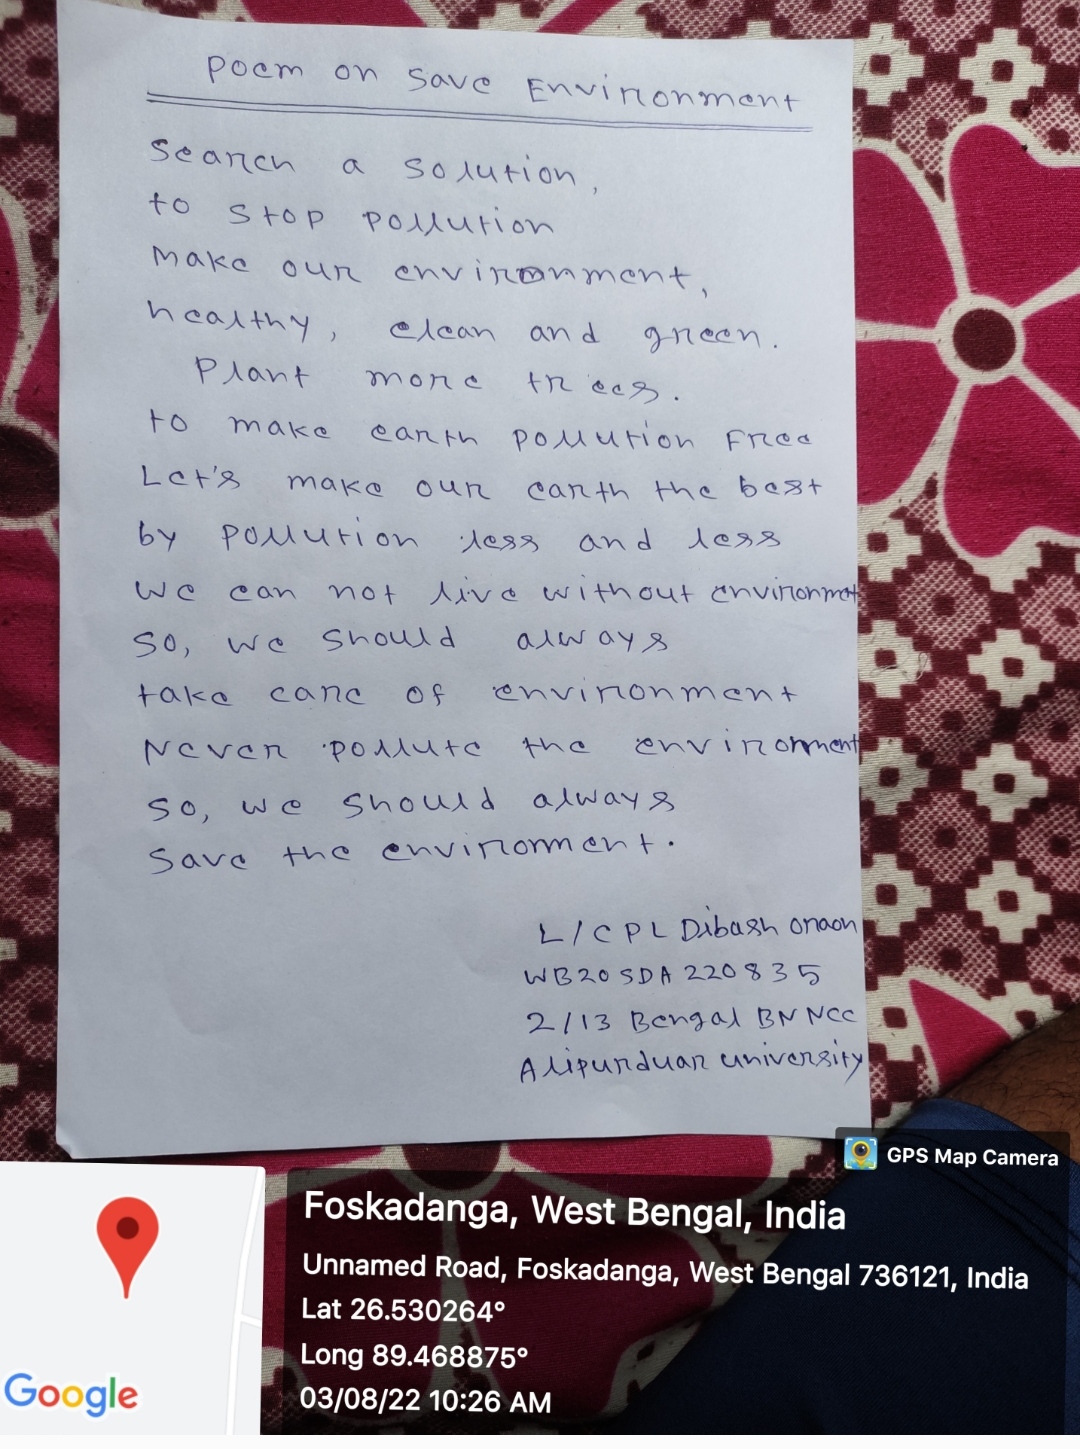 Poem on Save Environment
Search a solution,
to stop pollution
Make our environment,
healthy, clean and green.
Plant more trees.
to make earth pollution Free
Let's make our earth the best
by pollution less and less
We can not live without environmet
So, we should always
take care of environment
Never pollute the environment
So, we should always
Save the environment.
L/CPL Dibash oraon
WB20SDA220835
2/13 Bengal BN NCC
Alipurduar university
GPS Map Camera
Foskadanga, West Bengal, India
Unnamed Road, Foskadanga, West Bengal 736121, India
Lat 26.530264°
Long 89.468875°
03/08/22 10:26 AM
Google